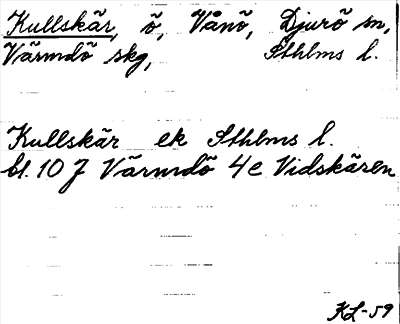 Kullskär, ö, Vånö, Djurö sn,
Värmdö skg, Sthlms l.
Kullskär ek Sthlms l.
bl. 10 J Värmdö 4e Vidskären
KL-59